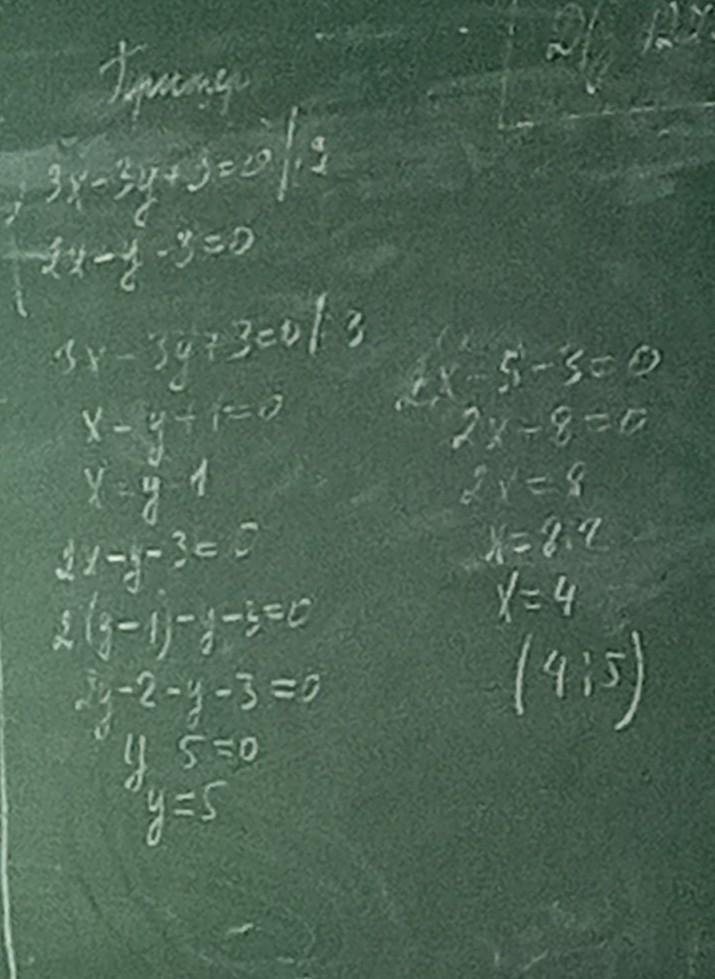 Пример
3x-3y+3=0/:3
2x-y-3=0
3x-3y+3=0/:3
x-y+1=0
x=y-1
2x-y-3=0
2(y-1)-y-3=0
2y-2-y-3=0
y 5=0
y=5
2x-5-3=0
2x-8=0
2x=8
x=8:2
x=4
(4;5)